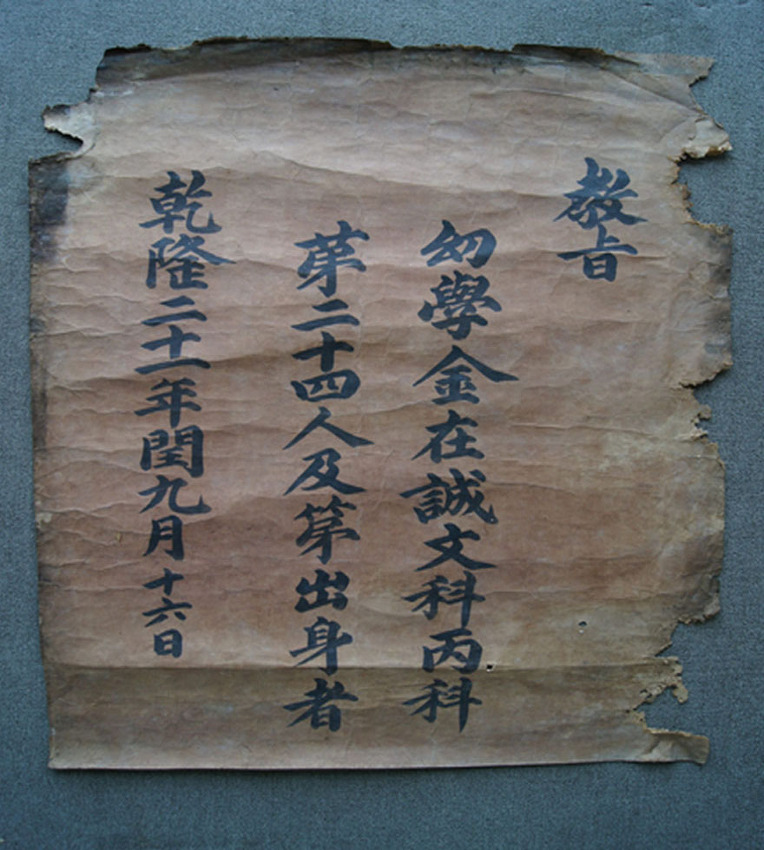 教旨
幼學金在誠文科丙科
苐二十四人及苐出身者
乾隆二十一年閏九月十六日